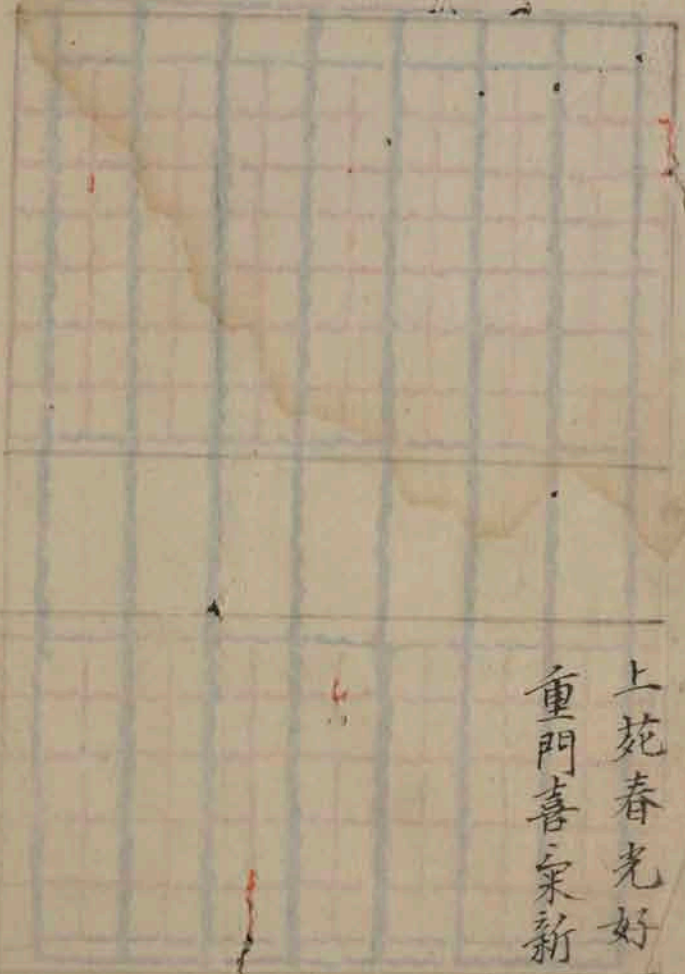 上苑春光好
重門喜氣新